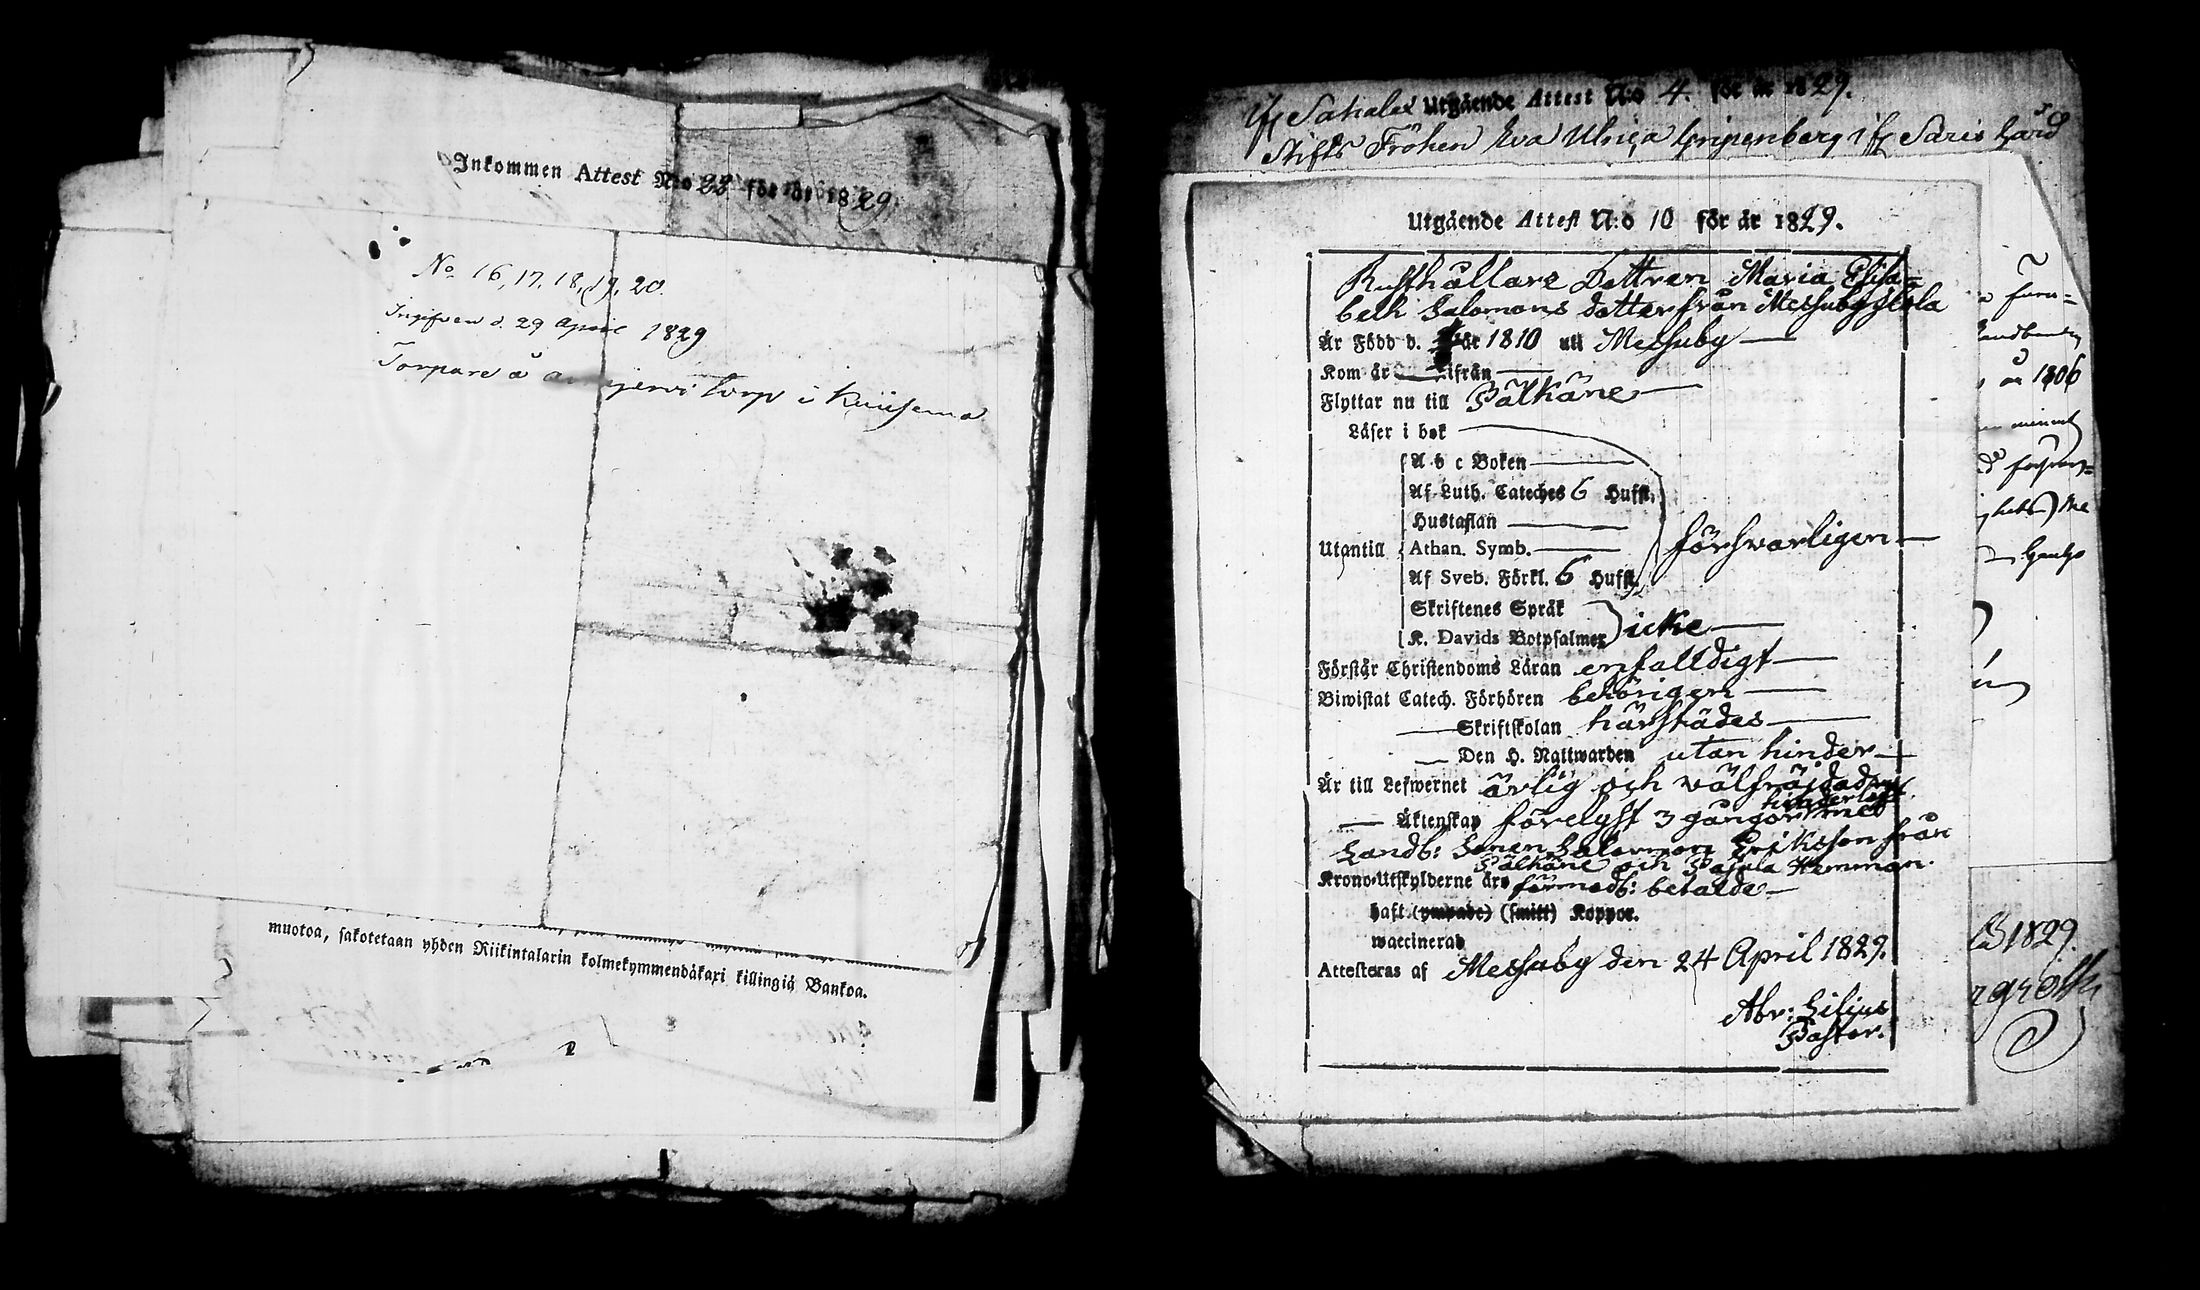 Inkommen Attest N:o 22 för år 1829
No 16, 17, 18, 19, 20.
Ingifven d. 29 April 1829
Torpare å torp i Kuisema
muotoa, sakotetaan yhden Riikintalarin kolmekymmendäkaxi killingiä Bankoa.
Utgående Attest N:o 4. för år 1829.
Stifts Fröken Eva Ulrica Gripenberg ifr Saris Gård
Utgående Attest N:o 10 för år 1829.
Rusthållare Dottren Maria Elisa=
beth Salomons dotter från Messuby
Är Född d. år 1810 uti Messuby
Kom år ifrån
Flyttar nu till Pälkäne
Läser i bok
A b c Boken
Af Luth. Cateches 6 Hufst.
Hustaflan
Utantill Athan. Symb. försvarligen
Af Sveb. Förkl. 6 Hufst.
Skriftenes Språk
K. Davids Botpsalmer icke
Förstår Christendoms Läran enfalldigt
Biwistat Catech. Förhören behörigen
Skriftskolan härstädes
Den H. Nattwarden utan hinder
Är till Lefwernet ärlig och välfräjdad
hinderlöst
Äktenskap förelyst 3 gångor med
Landb: Sonen Salomon Eriksson från
Pälkäne och Pajula Hemman.
Krono-Utskylderne äro förmodl: betalde
haft (ympade) (smitt) Koppor.
waccinerad
Attesteras af Messuby den 24 April 1829.
Abr: Lilius
Pastor.
år 1806
1829.